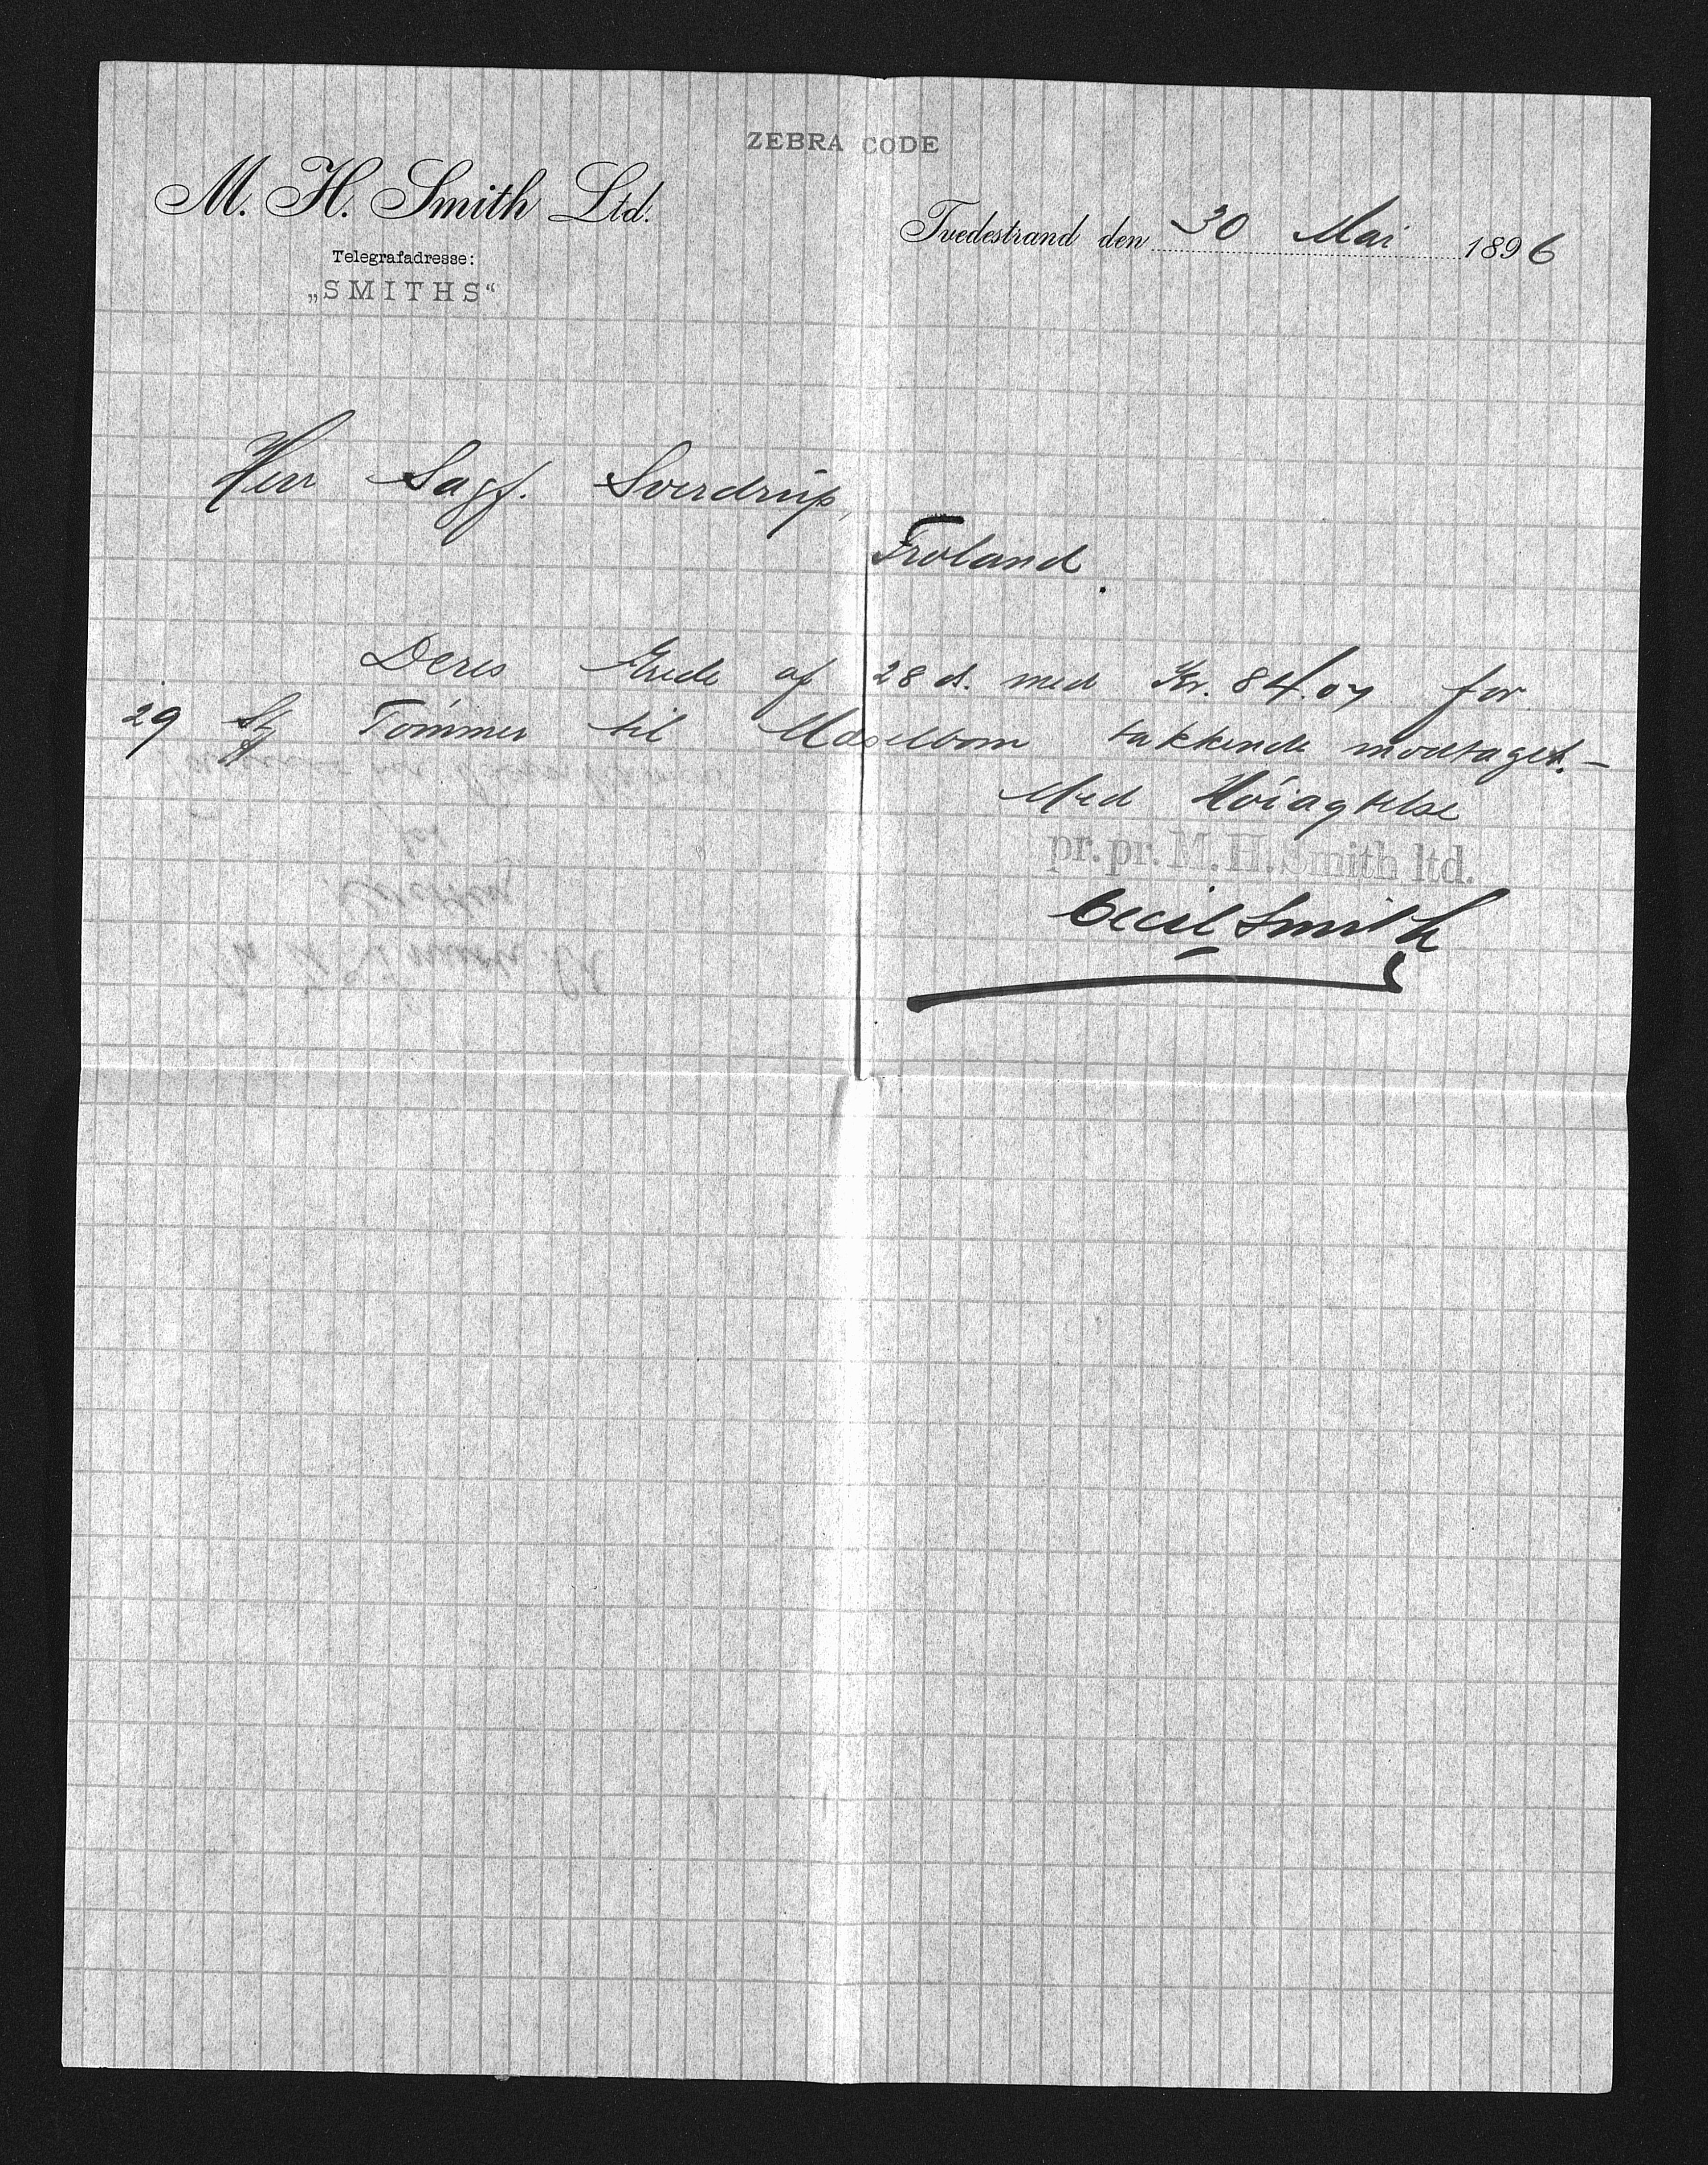 ZEBRA CODE
M. H. Smith Ltd.
Telegrafadresse:
„SMITHS“
Tvedestrand den 30 Mai 1896
Herr Sagf. Sverdrup,
Froland.
Deres Ærede af 28 d. med Kr. 84.07 for
29 St Tømmer til takkende modtaget. —
Med Høiagtelse
pr. pr. M. H. Smith ltd.
Cecil Smith